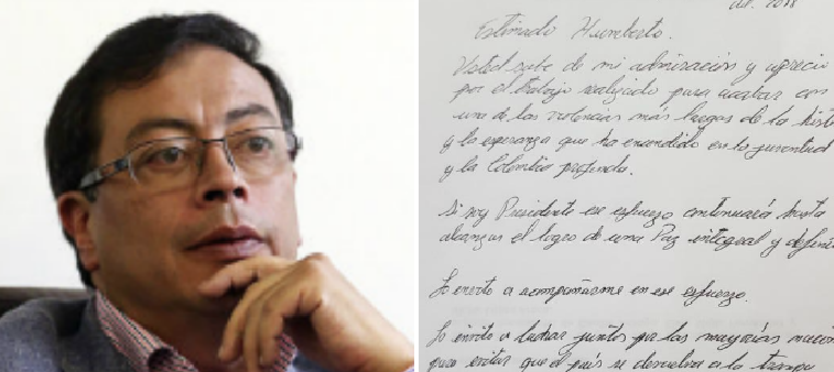 Jul. 2018
Estimado Humberto.
Usted sabe de mi admiración y aprecio
por el trabajo realizado para acabar con
una de las violencias más largas de la hist
y la esperanza que ha encendido en la juventud
y la Colombia profunda.
Si soy Presidente ese esfuerzo continuará hasta
alcanzar el logro de una Paz integral y defini
Lo invito a acompañarme en ese esfuerzo.
Lo invito a luchar juntos por las mayorías
para evitar que el país se devuelva a la